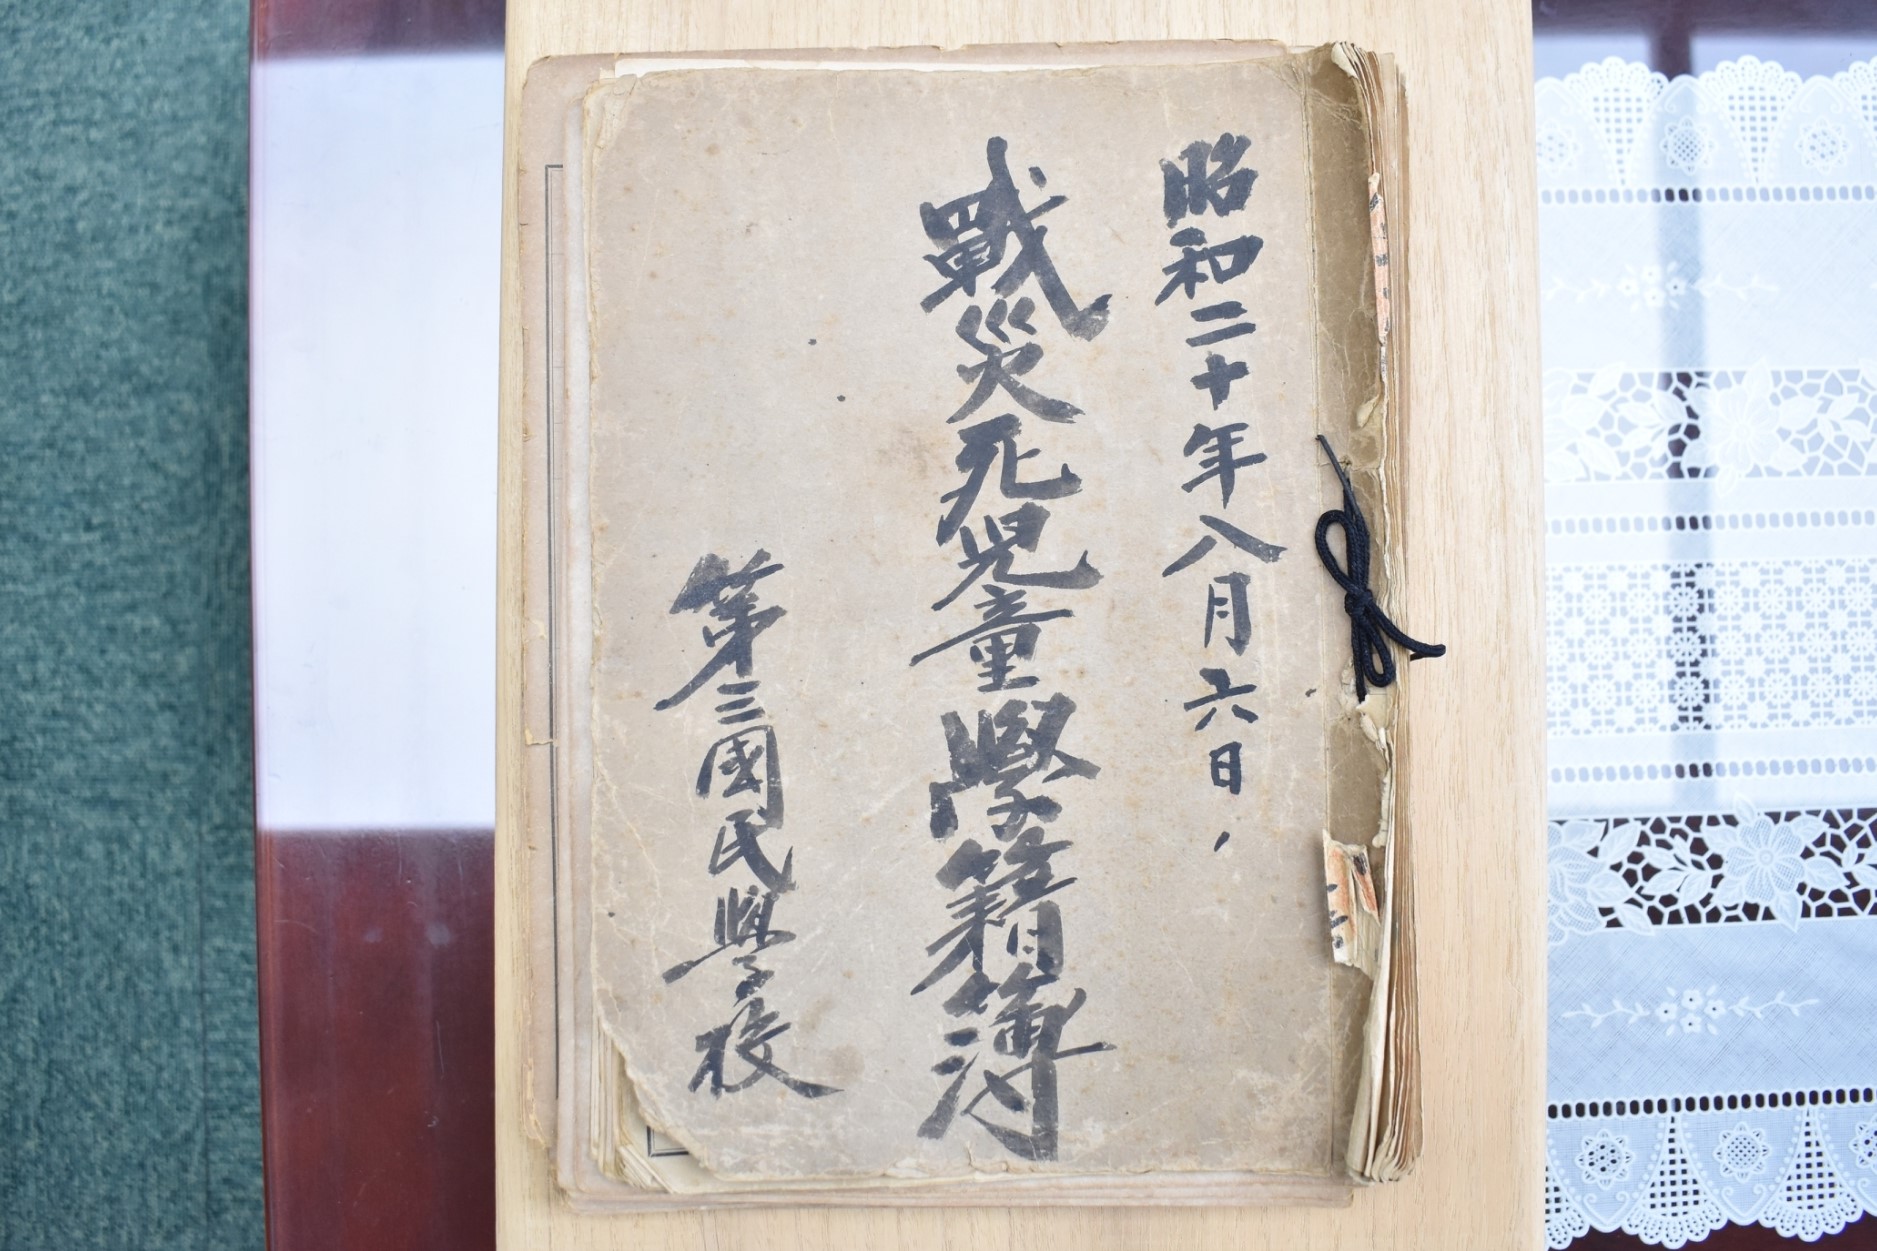 昭和二十年八月六日、
戰災死児童學籍簿
第三國民學校